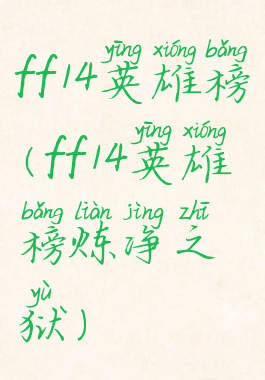 yīng xióng bǎng
ff14英雄榜
yīng xióng
(ff14英雄
bǎng liàn jìng zhī
榜炼净之
yù
狱)